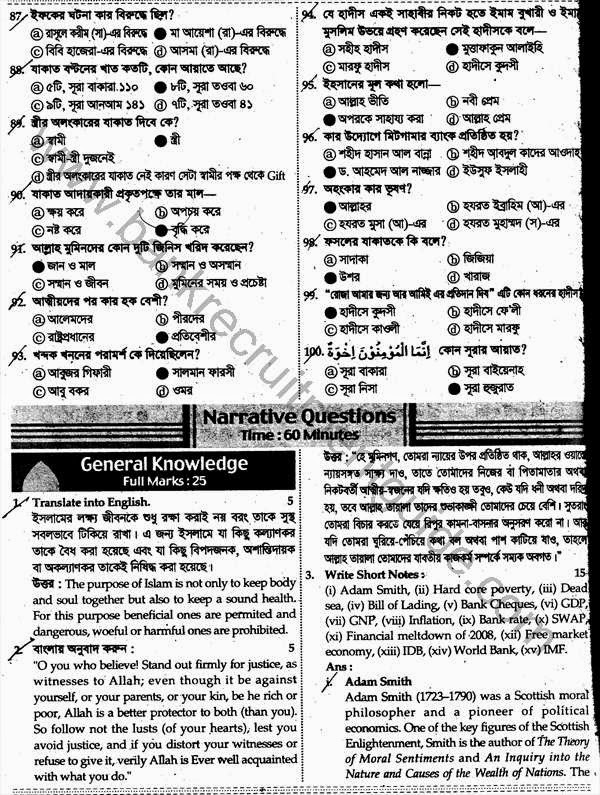 87. ইফকের ঘটনা কার বিরুদ্ধে ছিল?
ⓐ রাসূলে করীম (সা)-এর বিরুদ্ধে ● মা আয়েশা (রা)-এর বিরুদ্ধে
ⓒ বিবি হাজেরা-এর বিরুদ্ধে ⓓ আসমা (রা)-এর বিরুদ্ধে
88. যাকাত বণ্টনের খাত কতটি, কোন আয়াতে আছে?
ⓐ ৫টি, সূরা বাকারা.১১০ ● ৮টি, সূরা তওবা ৬০
ⓒ ৯টি, সূরা আনআম ১৪১ ⓓ ৭টি, সূরা তওবা ৪১
89. স্ত্রীর অলংকারের যাকাত দিবে কে?
ⓐ স্বামী ● স্ত্রী
ⓒ স্বামী-স্ত্রী দুজনেই
ⓓ স্ত্রীর অলংকারের যাকাত নেই কারণ সেটা স্বামীর পক্ষ থেকে Gift
90. যাকাত আদায়কারী প্রকৃতপক্ষে তার মাল—
ⓐ ক্ষয় করে ⓑ অপচয় করে
ⓒ নষ্ট করে ● বৃদ্ধি করে
91. আল্লাহ মুমিনদের কোন দুটি জিনিস খরিদ করেছেন?
● জান ও মাল ⓑ সম্মান ও অসম্মান
ⓒ সম্মান ও জীবন ⓓ মুমিনের সময় ও প্রচেষ্টা
92. আত্মীয়দের পর কার হক বেশী?
ⓐ আলেমদের ⓑ পীরদের
ⓒ রাষ্ট্রপ্রধানের ● প্রতিবেশীর
93. খন্দক খননের পরামর্শ কে দিয়েছিলেন?
ⓐ আবুজর গিফারী ● সালমান ফারসী
ⓒ আবু বকর ⓓ ওমর
94. যে হাদীস একই সাহাবীর নিকট হতে ইমাম বুখারী ও ইমাম
মুসলিম উভয়ে গ্রহণ করেছেন সেই হাদীসকে বলে—
ⓐ সহীহ হাদীস ● মুত্তাফাকুন আলাইহি
ⓒ মারফু হাদীস ⓓ হাদীসে কুদসী
95. ইহসানের মূল কথা হলো—
ⓐ আল্লাহ ভীতি ⓑ নবী প্রেম
● অপরকে সাহায্য করা ⓓ আল্লাহ প্রেম
96. কার উদ্যোগে মিটগামার ব্যাংক প্রতিষ্ঠিত হয়?
ⓐ শহীদ হাসান আল বান্না ⓑ শহীদ আবদুল কাদের আওদাহ
● ড. আহমেদ আল নাজ্জার ⓓ ইউসুফ ইসলাহী
97. অহংকার কার ভূষণ?
● আল্লাহর ⓑ হযরত ইব্রাহিম (আ)-এর
ⓒ হযরত মুসা (আ)-এর ⓓ হযরত মুহাম্মদ (স)-এর
98. ফসলের যাকাতকে কি বলে?
ⓐ সাদাকা ⓑ জিজিয়া
● উশর ⓓ খারাজ
99. “রোজা আমার জন্য আর আমিই এর প্রতিদান দিব” এটি কোন ধরনের হাদীস?
● হাদীসে কুদসী ⓑ হাদীসে ফে'লী
ⓒ হাদীসে কাওলী ⓓ হাদীসে মারফু
100. اِنَّمَا الْمُؤْمِنُوْنَ اِخْوَةٌ কোন সূরার আয়াত?
ⓐ সূরা বাকারা ⓑ সূরা বাইয়েনাহ
ⓒ সূরা নিসা ● সূরা হুজুরাত
Narrative Questions
Time : 60 Minutes
General Knowledge
Full Marks : 25
1. Translate into English. 5
ইসলামের লক্ষ্য জীবনকে শুধু রক্ষা করাই নয় বরং তাকে সুস্থ
সবলভাবে টিকিয়ে রাখা। এ জন্য ইসলামে যা কিছু কল্যাণকর
তাকে বৈধ করা হয়েছে এবং যা কিছু বিপদজনক, অশান্তিদায়ক
বা অকল্যাণকর তাকেই নিষিদ্ধ করা হয়েছে।
উত্তর : The purpose of Islam is not only to keep body
and soul together but also to keep a sound health.
For this purpose beneficial ones are permited and
dangerous, woeful or harmful ones are prohibited.
2. বাংলায় অনুবাদ করুন : 5
"O you who believe! Stand out firmly for justice, as
witnesses to Allah; even though it be against
yourself, or your parents, or your kin, be he rich or
poor, Allah is a better protector to both (than you).
So follow not the lusts (of your hearts), lest you
avoid justice, and if you distort your witnesses or
refuse to give it, verily Allah is Ever well acquainted
with what you do."
উত্তর : "হে মুমিনগণ, তোমরা ন্যায়ের উপর প্রতিষ্ঠিত থাক, আল্লাহর ওয়াস্তে
ন্যায়সঙ্গত সাক্ষ্য দাও, তাতে তোমাদের নিজের বা পিতামাতার অথবা
নিকটবর্তী আত্মীয়-স্বজনের যদি ক্ষতিও হয় তবুও, কেউ যদি ধনী অথবা দরিদ্র
হয়, তবে আল্লাহ তায়ালা তাদের শুভাকাঙ্ক্ষী তোমাদের চেয়ে বেশি। সুতরাং
তোমরা বিচার করতে যেয়ে রিপুর কামনা-বাসনার অনুসরণ করো না। আর
যদি তোমরা ঘুরিয়ে-পেঁচিয়ে কথা বল অথবা পাশ কাটিয়ে যাও, তাহলে
আল্লাহ তায়ালা তোমাদের যাবতীয় কাজকর্ম সম্পর্কে সম্যক অবগত।"
3. Write Short Notes : 15
(i) Adam Smith, (ii) Hard core poverty, (iii) Dead
sea, (iv) Bill of Lading, (v) Bank Cheques, (vi) GDP,
(vii) GNP, (viii) Inflation, (ix) Bank rate, (x) SWAP,
(xi) Financial meltdown of 2008, (xii) Free market
economy, (xiii) IDB, (xiv) World Bank, (xv) IMF.
Ans :
i. Adam Smith
Adam Smith (1723–1790) was a Scottish moral
philosopher and a pioneer of political
economics. One of the key figures of the Scottish
Enlightenment, Smith is the author of The Theory
of Moral Sentiments and An Inquiry into the
Nature and Causes of the Wealth of Nations. The